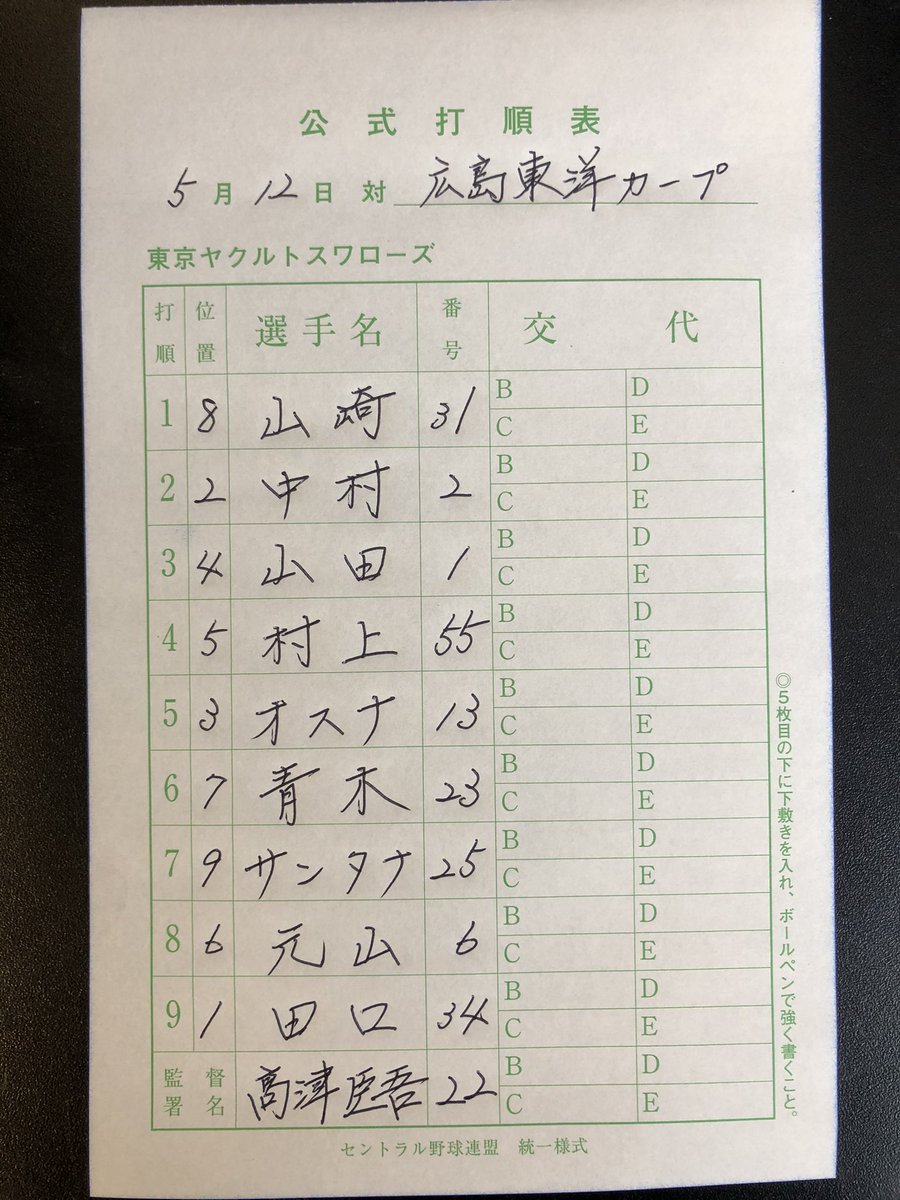 公式打順表
5月12日 対 広島東洋カープ
東京ヤクルトスワローズ
打順 位置 選手名 番号 交代
1 8 山崎 31 B D C E
2 2 中村 2 B D C E
3 4 山田 1 B D C E
4 5 村上 55 B D C E
5 3 オスナ 13 B D C E
6 7 青木 23 B D C E
7 9 サンタナ 25 B D C E
8 6 元山 6 B D C E
9 1 田口 34 B D C E
監督署名 高津臣吾 22 B D C E
◎5枚目の下に下敷きを入れ、ボールペンで強く書くこと。
セントラル野球連盟 統一様式